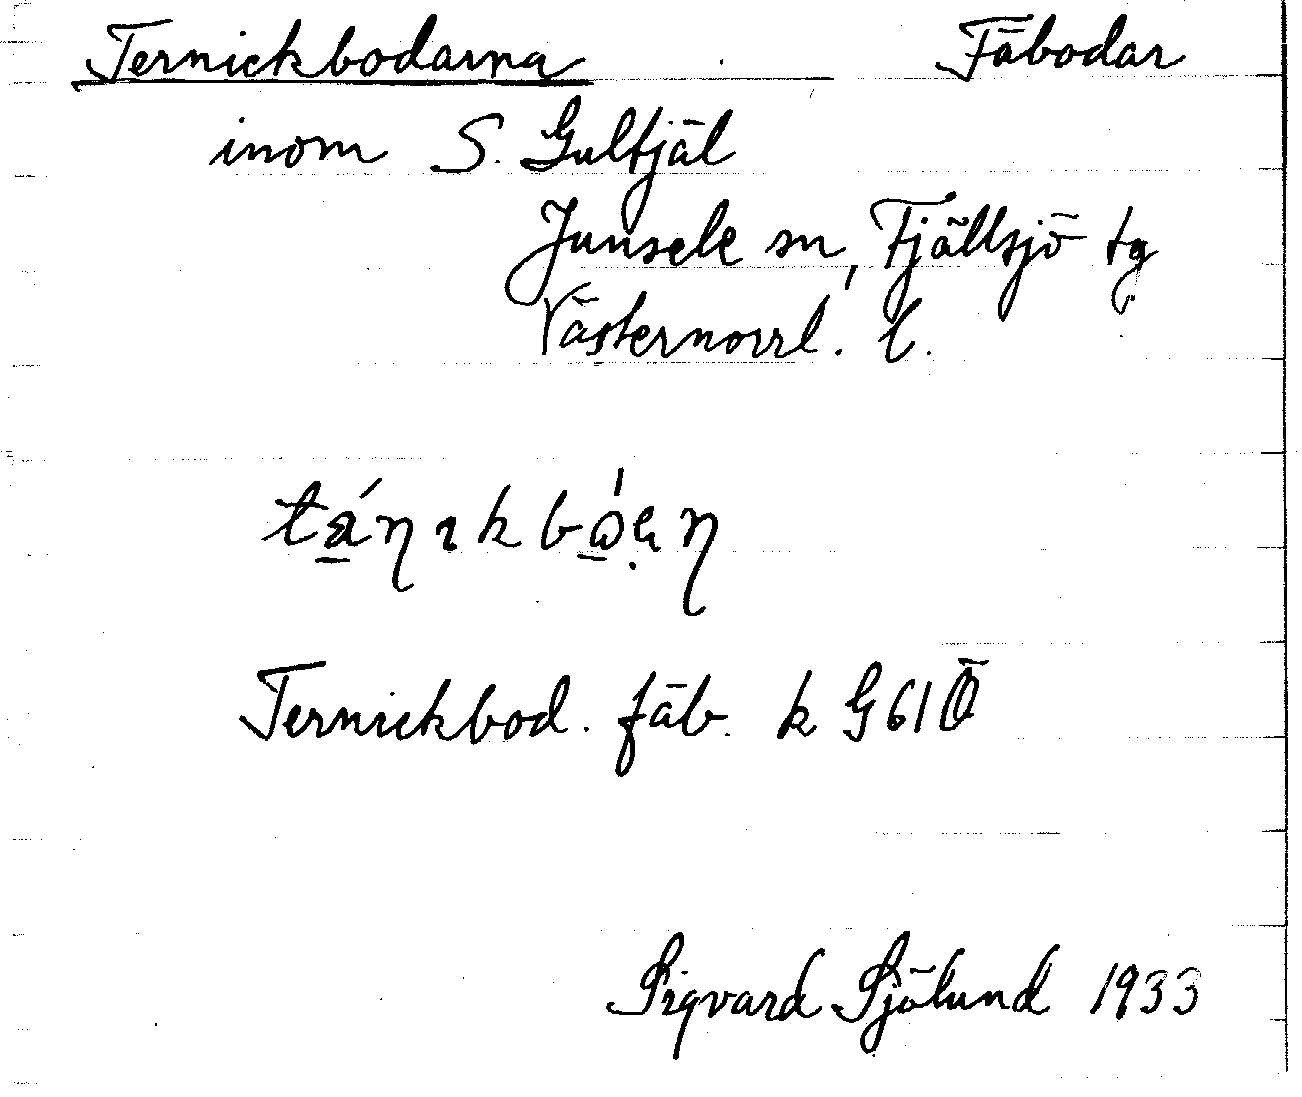 Ternickbodarna Fäbodar
inom S. Gulsjäl
Junsele sn, Fjällsjö tg
Västernorrl. l.
Ternickbod. fäb. k G61Ö
Sigvard Sjölund 1933